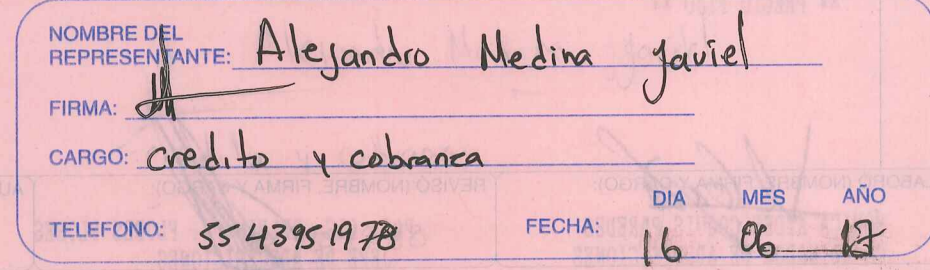 NOMBRE DEL
REPRESENTANTE: Alejandro Medina Javiel
FIRMA:
CARGO: credito y cobranza
DIA MES AÑO
TELEFONO: 5543951978 FECHA: 16 06 17